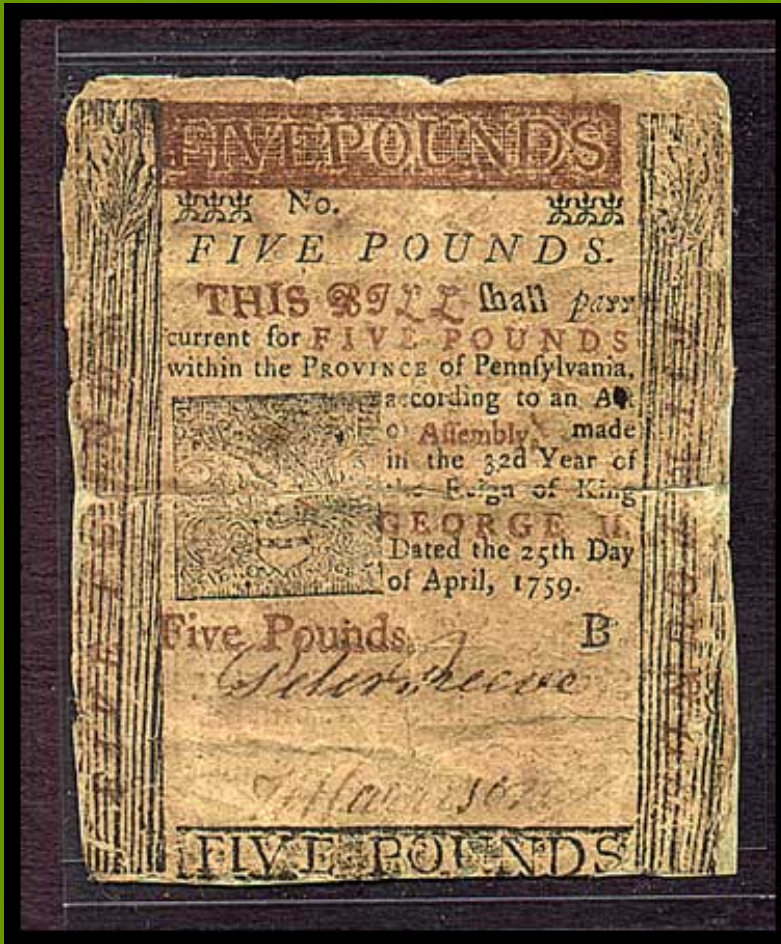 FIVE POUNDS
No.
FIVE POUNDS.
THIS BILL ſhall paſs
current for FIVE POUNDS
within the PROVINCE of Pennſylvania,
according to an Act
of Aſſembly, made
in the 32d Year of
the Reign of King
GEORGE II.
Dated the 25th Day
of April, 1759.
Five Pounds. B
Peter Reeve
Harrison
FIVE POUNDS